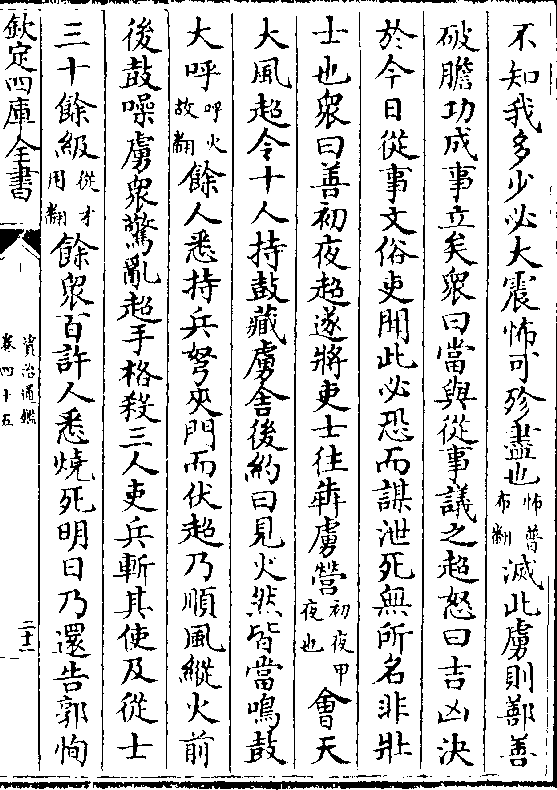 不知我多少必大震怖可殄盡也怖普布翻滅此虜則鄯善
破膽功成事立矣衆曰當與從事議之超怒曰吉凶決
於今日從事文俗吏聞此必恐而謀泄死無所名非壯
士也衆曰善初夜超遂將吏士往犇虜營初夜甲夜也會天
大風超令十人持鼓藏虜舍後約曰見火然皆當鳴鼓
大呼呼火故翻餘人悉持兵弩夾門而伏超乃順風縱火前
後鼓噪虜衆驚亂超手格殺三人吏兵斬其使及從士
三十餘級從才用翻餘衆百許人悉燒死明日乃還告郭恂
欽定四庫全書
資治通鑑
卷四十五
二十二